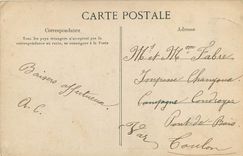 CARTE POSTALE
Correspondance
Tous les pays étrangers n'acceptent pas la
correspondance au recto, se renseigner à la Poste
Adresse
Mr et Mme Fabre
Campagne
Pont de Bois
Toulon
Var
Baisers affectueux
A. C.